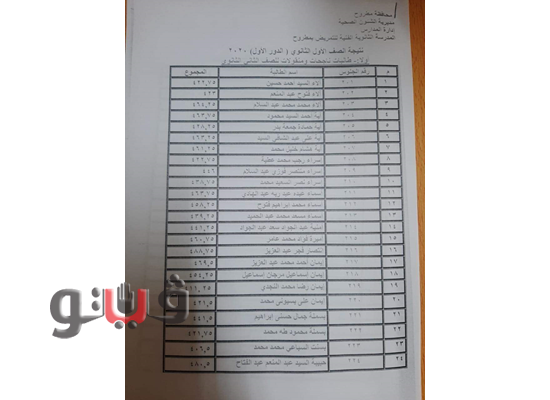 محافظة مطروح
مديرية الشئون الصحية
إدارة المدارس
المدرسة الثانوية الفنية للتمريض بمطروح
نتيجة الصف الأول الثانوي (الدور الأول) ٢٠٢٠
أولا:- طالبات ناجحات ومنقولات للصف الثاني الثانوي
م رقم الجلوس اسم الطالبة المجموع
١ ٢٠١ الاء السيد احمد حسين ٤٢٢,٧٥
٢ ٢٠٢ الاء فتوح عبد المنعم ٤٢٣
٣ ٢٠٣ الاء محمد محمد عبد السلام ٤٦٤,٢٥
٤ ٢٠٤ اية احمد السيد محمود ٤٦٣,٧٥
٥ ٢٠٥ اية حمادة جمعة بدر ٤٢٨,٢٥
٦ ٢٠٦ اية على عبد الشافى السيد ٤٦٣,٢٥
٧ ٢٠٧ اية هشام حسن محمد ٤٦١,٢٥
٨ ٢٠٨ إسراء رجب محمد عطية ٤٢٢,٧٥
٩ ٢٠٩ إسراء منتصر فوزى عبد السلام ٤٤٦
١٠ ٢١٠ إسراء نصر السعيد محمد ٤٣٨,٧٥
١١ ٢١١ اسماء عبده عبد ربه عبد الهادى ٤٦٣,٧٥
١٢ ٢١٢ اسماء محمد ابراهيم فتوح ٤٥٨,٢٥
١٣ ٢١٣ اسماء مسعد محمد عبد الحميد ٤٣٩,٢٥
١٤ ٢١٤ امنية عبد الجواد سعد عبد الجواد ٤٤١,٢٥
١٥ ٢١٥ اميرة فؤاد محمد عامر ٤٦٠,٧٥
١٦ ٢١٦ انتصار فجر عبد العزيز ٤٨٨,٧٥
١٧ ٢١٧ إيمان احمد محمد عبد العزيز ٤٦٩,٥
١٨ ٢١٨ إيمان إسماعيل مرجان إسماعيل ٤٥٤,٢٥
١٩ ٢١٩ إيمان رضا محمد النجدى ٤١١,٢٥
٢٠ ٢٢٠ إيمان على بسيونى محمد ٤٢١,٥
٢١ ٢٢١ بسملة جمال حسنى إبراهيم ٤٤١,٥
٢٢ ٢٢٢ بسملة محمود طه محمد ٤٢١,٧٥
٢٣ ٢٢٣ بسنت السباعى محمد محمد ٤٠٦,٥
٢٤ ٢٢٤ حبيبة السيد عبد المنعم عبد الفتاح ٤٨٠,٥
فيتو